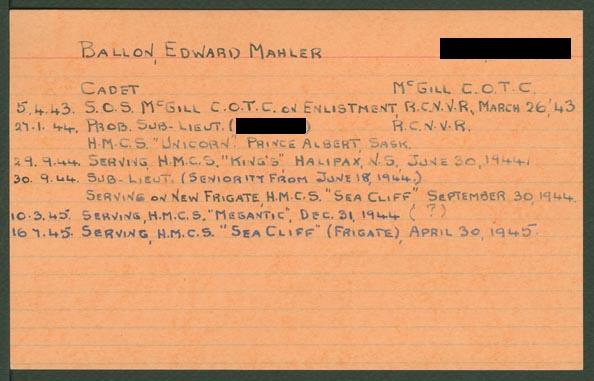 BALLON, EDWARD MAHLER
CADET McGILL C.O.T.C.
5.4.43. S.O.S. McGILL C.O.T.C. ON ENLISTMENT, R.C.N.V.R., MARCH 26,'43
27.1.44. PROB. SUB-LIEUT. ( ) R.C.N.V.R.
H.M.C.S. "UNICORN". PRINCE ALBERT, SASK.
29.9.44. SERVING, H.M.C.S. "KING'S", HALIFAX, N.S., JUNE 30,1944
30.9.44. SUB-LIEUT. (SENIORITY FROM JUNE 18,1944.)
SERVING ON NEW FRIGATE, H.M.C.S. "SEA CLIFF" SEPTEMBER 30,1944.
10.3.45. SERVING, H.M.C.S. "MEGANTIC", DEC. 31,1944 (?)
16.7.45. SERVING, H.M.C.S. "SEA CLIFF" (FRIGATE), APRIL 30,1945.